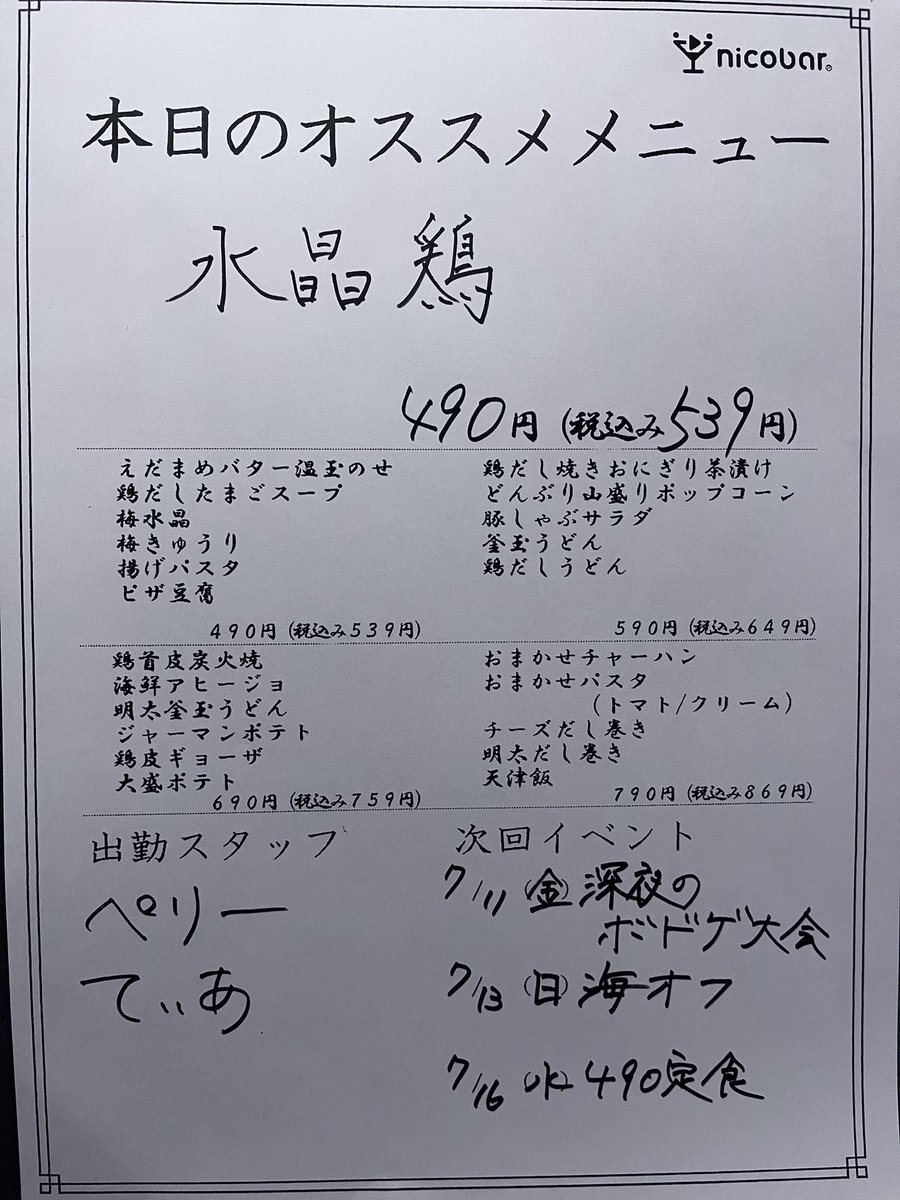 nicobar®
本日のオススメメニュー
水晶鶏
490円(税込み539円)
えだまめバター温玉のせ
鶏だしたまごスープ
梅水晶
梅きゅうり
揚げパスタ
ピザ豆腐
490円(税込み539円)
鶏だし焼きおにぎり茶漬け
どんぶり山盛りポップコーン
豚しゃぶサラダ
釜玉うどん
鶏だしうどん
590円(税込み649円)
鶏首皮炭火焼
海鮮アヒージョ
明太釜玉うどん
ジャーマンポテト
鶏皮ギョーザ
大盛ポテト
690円(税込み759円)
おまかせチャーハン
おまかせパスタ
(トマト/クリーム)
チーズだし巻き
明太だし巻き
天津飯
790円(税込み869円)
出勤スタッフ
ペリー
てぃあ
次回イベント
7/11(金)深夜の
ボドゲ大会
7/13(日)海オフ
7/16(水)490定食